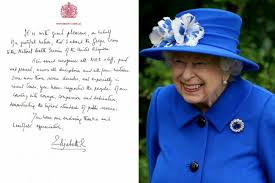 It is with great pleasure, on behalf
of a grateful nation, that I award the George Cross
to the National Health Services of the United Kingdom.
This award recognises all NHS staff, past
and present, across all disciplines and all four nations.
Over more than seven decades, and especially in
recent times, you have supported the people of our
country with courage, compassion and dedication,
demonstrating the highest standards of public service.
You have our enduring thanks and
heartfelt appreciation.
Elizabeth R